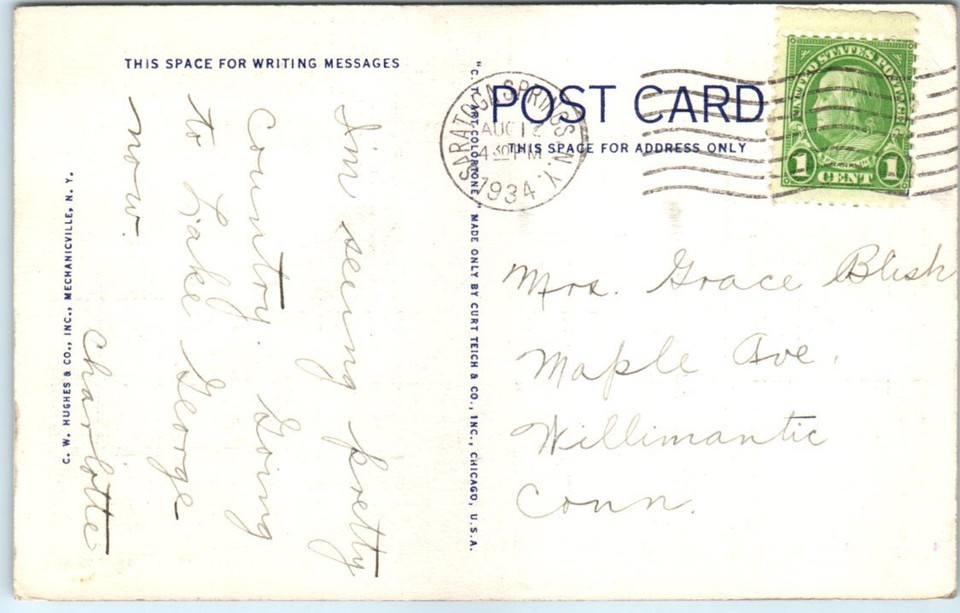 THIS SPACE FOR WRITING MESSAGES
I'm seeing pretty
country. Going
to Lake George
now.
Charlotte
C. W. HUGHES & CO., INC., MECHANICVILLE, N. Y.
"C. T. ART-COLORTONE" MADE ONLY BY CURT TEICH & CO., INC., CHICAGO, U.S.A.
POST CARD
THIS SPACE FOR ADDRESS ONLY
SARATOGA SPRINGS N.Y.
AUG 12
4 30 PM
1934
UNITED STATES POSTAGE
FRANKLIN
1 CENT 1
Mrs. Grace Blish
Maple Ave.
Willimantic
Conn.